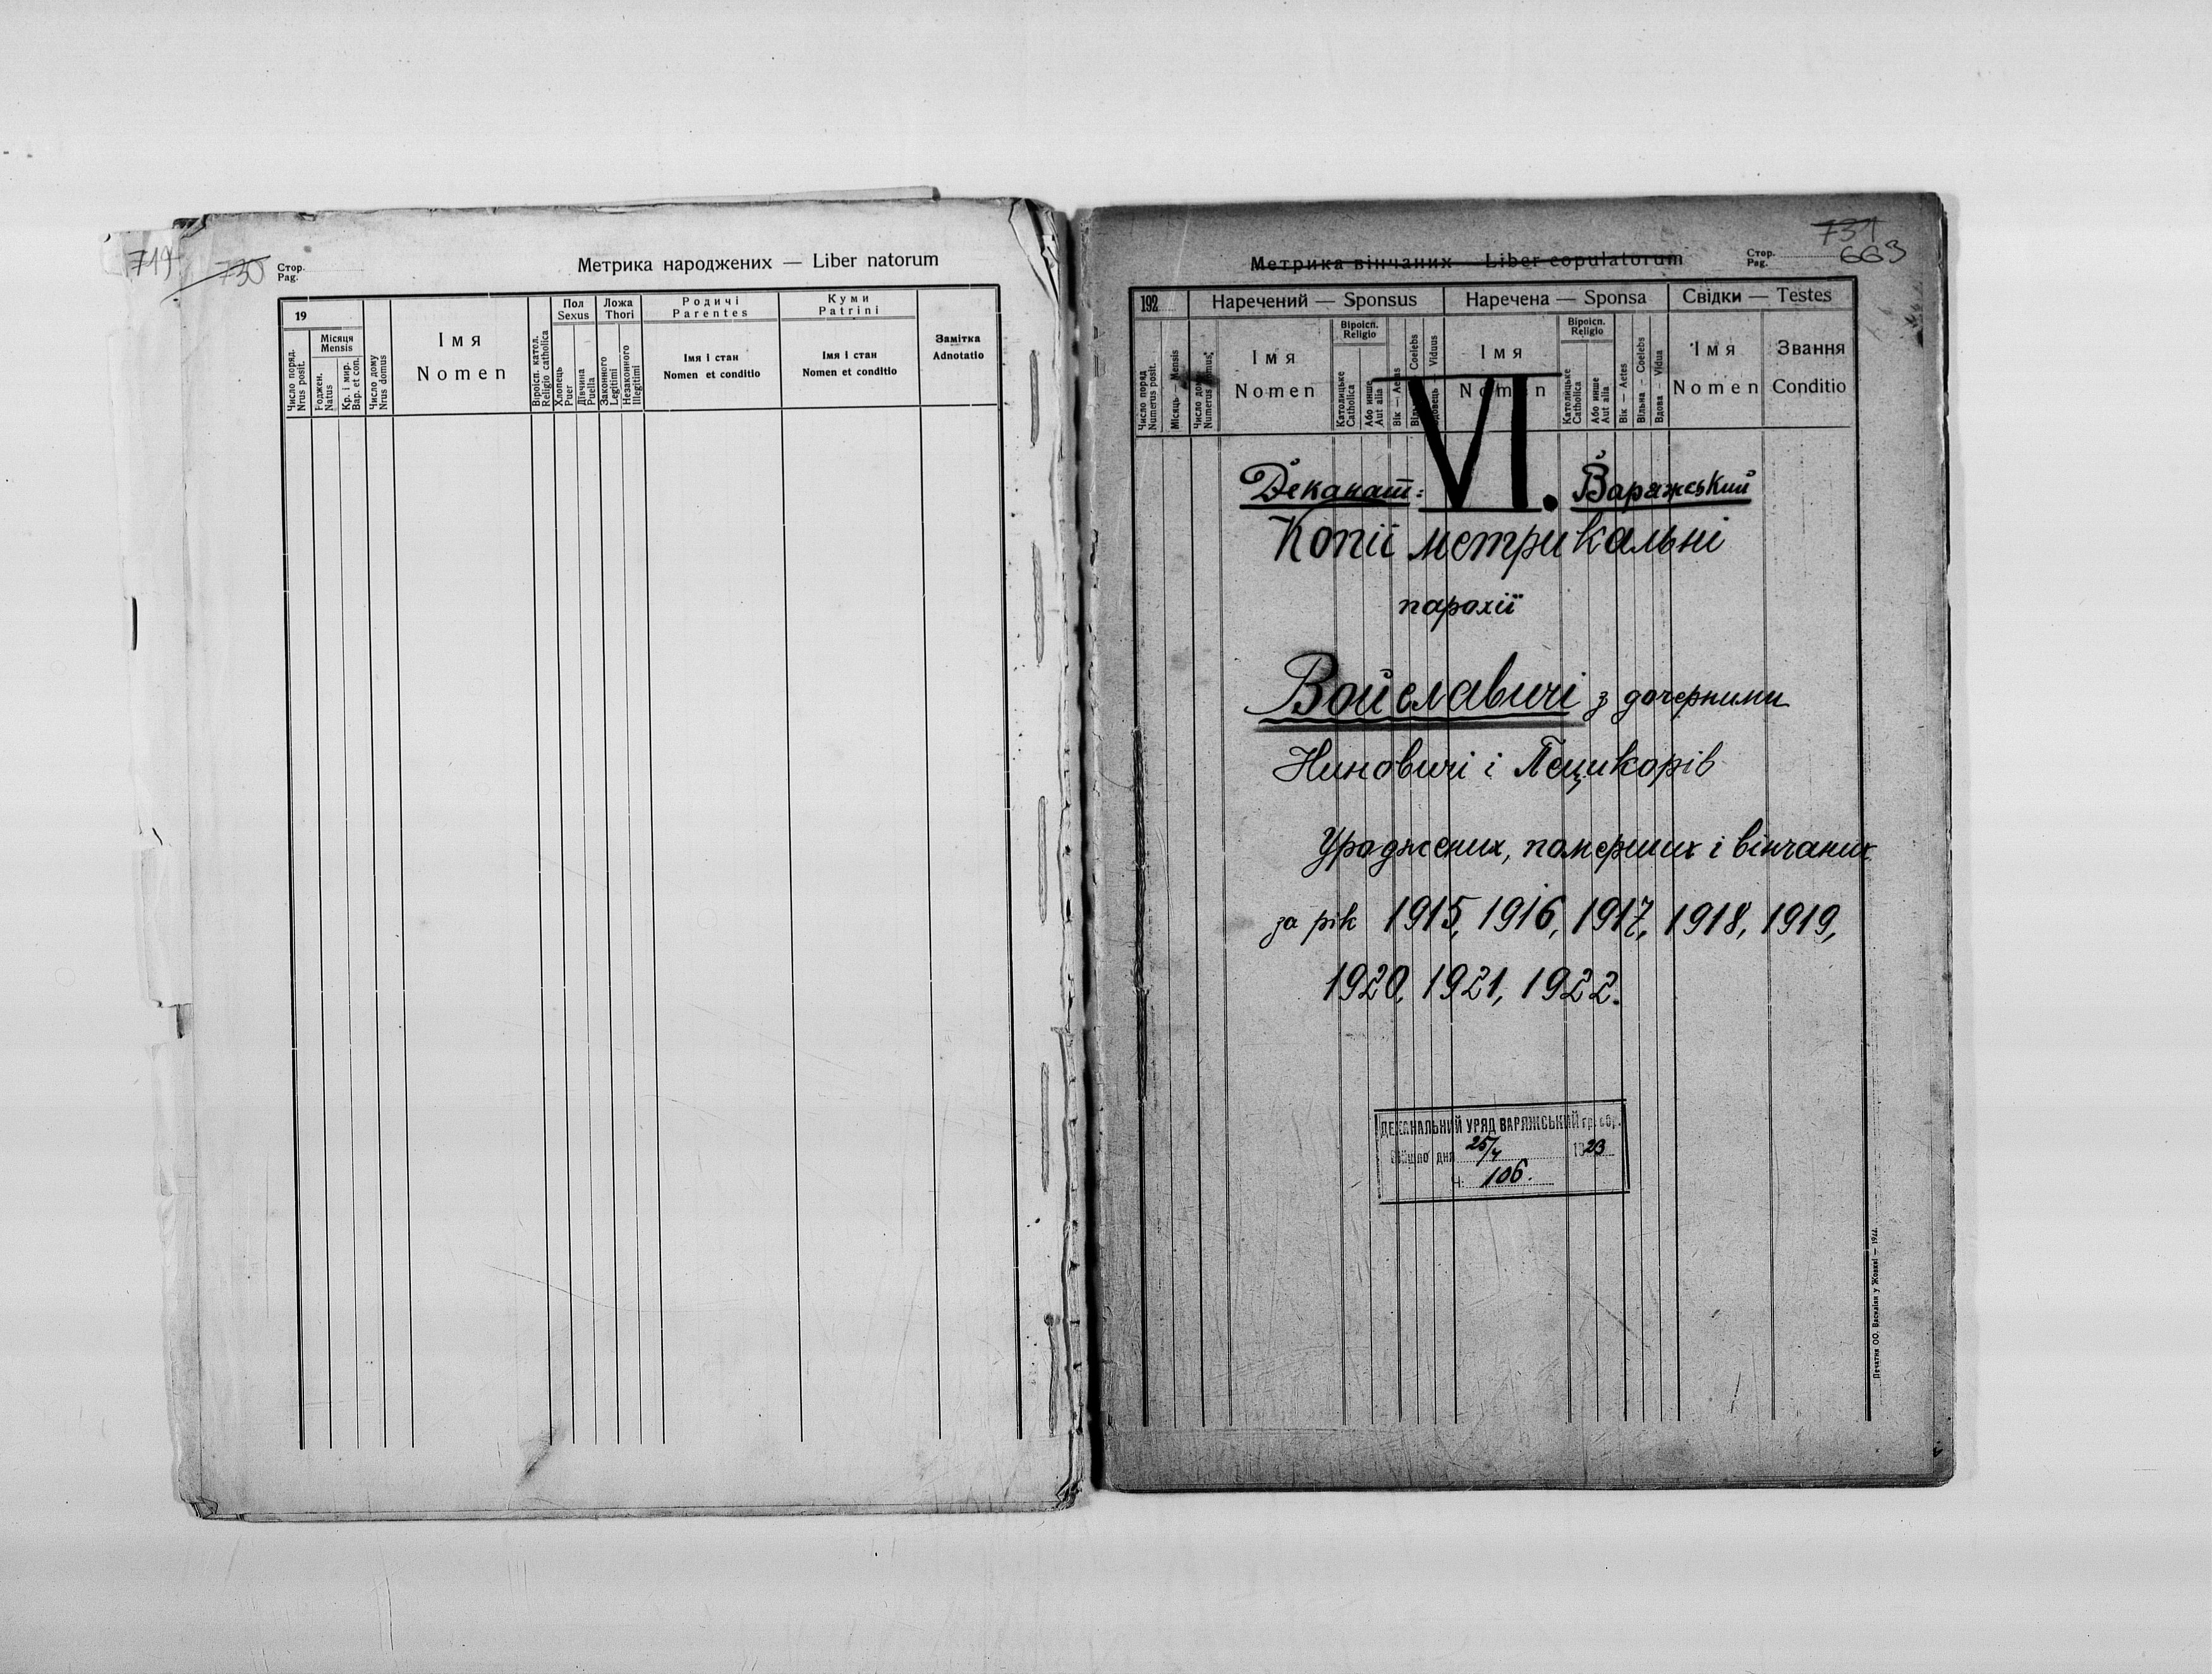 719
730
Стор.
Pag.
Метрика народжених — Liber natorum
19
Місяця
Mensis
Число поряд.
Nrus posit.
Роджен.
Natus
Кр. і мир.
Bap. et con.
Число дому
Nrus domus
Імя
Nomen
Віроісп. катол.
Religio catholica
Пол
Sexus
Хлопець
Puer
Дівчина
Puella
Ложа
Thori
Законного
Legitimi
Незаконного
Illegitimi
Родичі
Parentes
Імя і стан
Nomen et conditio
Куми
Patrini
Імя і стан
Nomen et conditio
Замітка
Adnotatio
731
663
Метрика вінчаних — Liber copulatorum
Стор.
Pag.
192
Наречений — Sponsus
Наречена — Sponsa
Свідки — Testes
Число поряд
Numerus posit.
Місяць — Mensis
Число дому
Numerus domus
Імя
Nomen
Віроісп.
Religio
Католицьке
Catholica
Або инше
Aut alia
Вік — Aetas
Coelebs
Viduus
Імя
Nomen
Віроісп.
Religio
Католицьке
Catholica
Або инше
Aut alia
Вік — Aetes
Вільна — Coelebs
Вдова — Vidua
Імя
Nomen
Звання
Conditio
VI.
Деканат: Варяжський
Копії метрикальні
парохії
Войславичі з дочерними
Ниновичі і Пецикорів
Уроджених, померших і вінчаних
за рік 1915, 1916, 1917, 1918, 1919,
1920, 1921, 1922.
ДЕКАНАЛЬНИЙ УРЯД ВАРЯЖСЬКИЙ гр. обр.
Війшло дня 25/4 1923
Ч: 106.
Печатня ОО. Василіян у Жовкві — 1922.